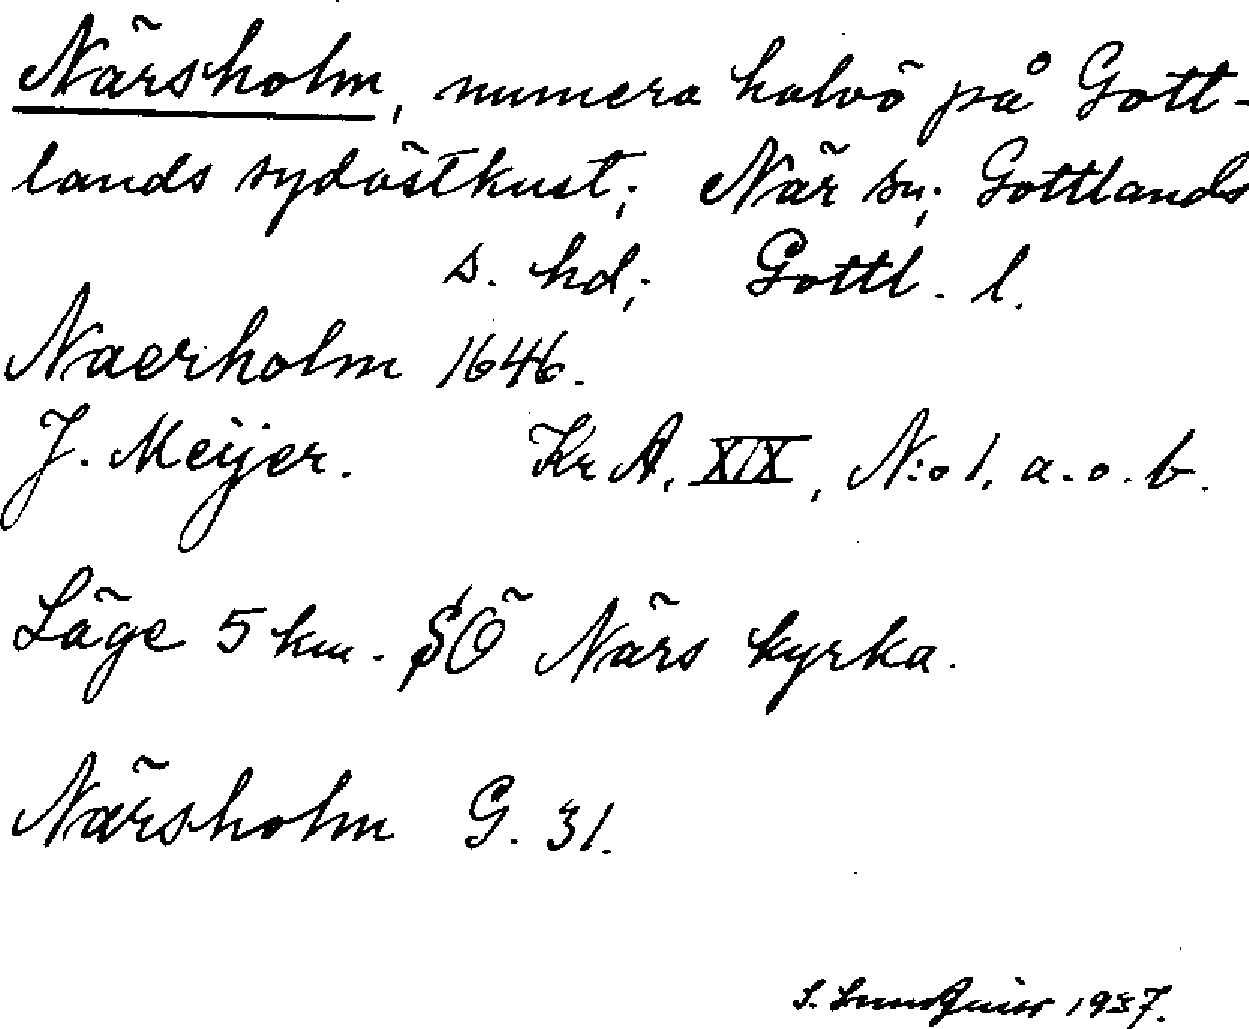 Närsholm, numera halvö på Gott-
lands sydöstkust; När sn; Gottlands
s. hd; Gottl. l.
Naerholm 1646.
J. Meijer. Kr A, XIX, N:o 1, a. o. b.
Läge 5 km. SÖ Närs kyrka.
Närsholm G. 31.
S. 1937.